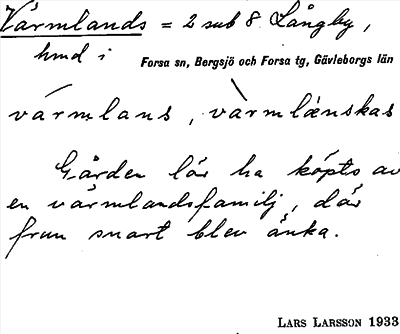 Värmlands = 2 sub 8 Långby,
hmd i Forsa sn, Bergsjö och Forsa tg, Gävleborgs län
värmlans, värmlänskas
Gården lär ha köpts av
en värmlandsfamilj, där
frun snart blev änka.
LARS LARSSON 1933